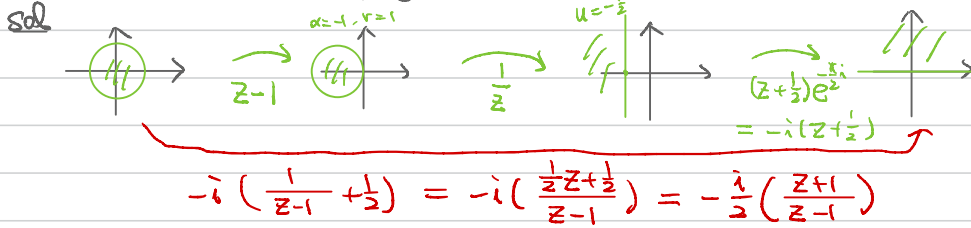 sol
α=-1, r=1
u=-\frac{1}{2}
z-1
\frac{1}{z}
(z+\frac{1}{2})e^{-\frac{π}{2}i}
= -i(z+\frac{1}{2})
-i(\frac{1}{z-1}+\frac{1}{2}) = -i(\frac{\frac{1}{2}z+\frac{1}{2}}{z-1}) = -\frac{i}{2}(\frac{z+1}{z-1})